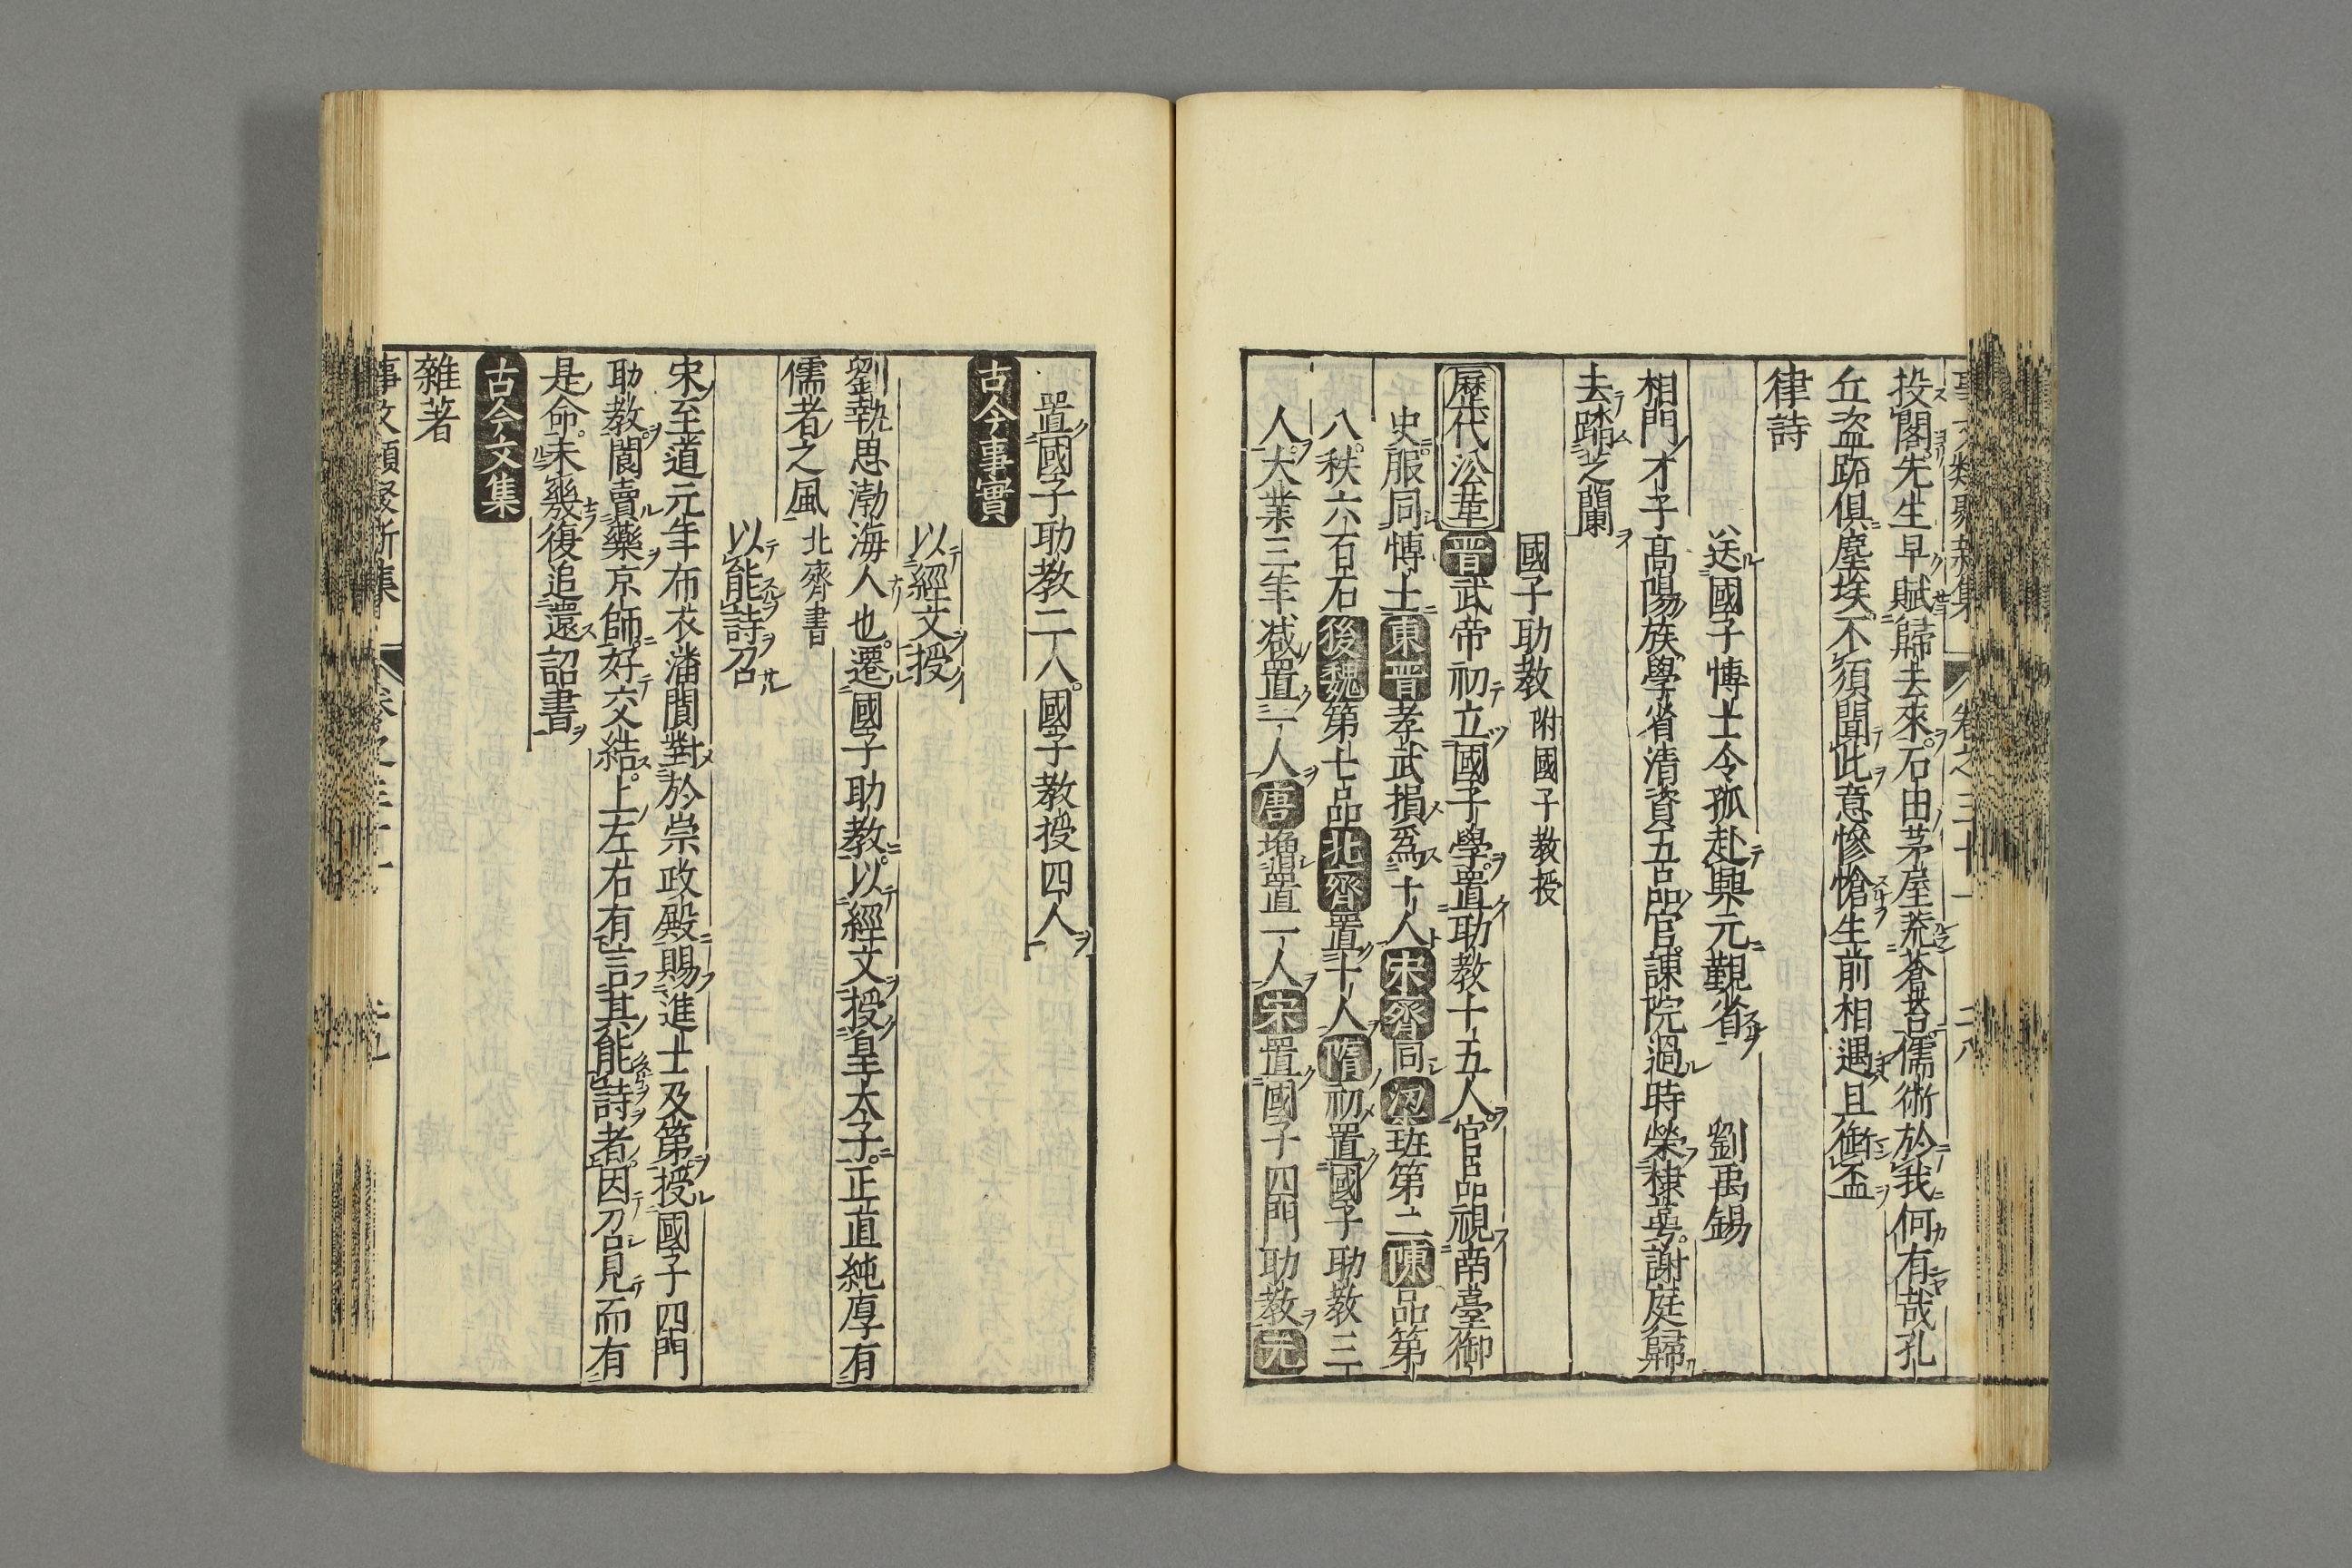 投閣先生早賦歸去來石田茅屋荒蒼苔儒術於我何有哉孔
丘盗跖俱塵埃不須聞此意慘愴生前相遇且銜盃
律詩
送國子愽士令孤赴興元覲省 劉禹錫
相門才子高陽族學省清資五品官諌院過時榮棣蕚謝庭歸
去踏芝蘭
國子助教 附國子教授
歷代沿革 晋武帝初立國子學置助教十五人官品視南臺御
史服同愽士東晋孝武損爲十人宋齊同梁班第二陳品第
八秩六百石後魏第七品北齊置十人隋初置國子助教三
人大業三年减置二人唐増置一人宋置國子四門助教元
置國子助教二人國子教授四人
古今事實
以經文授
劉執思渤海人也遷國子助教以經文授皇太子正直純厚有
儒者之風 北齊書
以能詩召
宋至道元年布衣潘閬對於崇政殿賜進士及第授國子四門
助教閬賣藥京師好交結上左右有言其能詩者因召見而有
是命未幾復追還詔書
古今文集
雜著